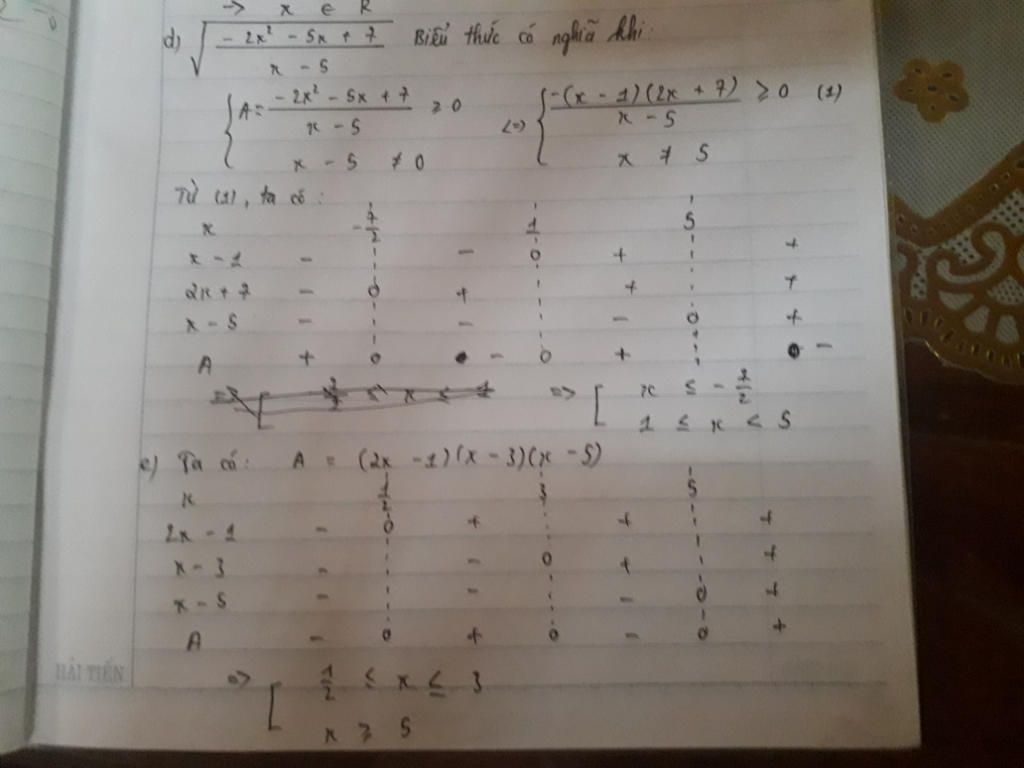 -> x ∈ R
d) √((-2x² - 5x + 7)/(x - 5)) Biểu thức có nghĩa khi:
{ A = (-2x² - 5x + 7)/(x - 5) ≥ 0 <=> { (-(x - 1)(2x + 7))/(x - 5) ≥ 0 (1)
x - 5 ≠ 0 x ≠ 5
Từ (1), ta có:
x -7/2 1 5
x - 1 - - 0 + +
2x + 7 - 0 + + +
x - 5 - - - 0 +
A + 0 - 0 + -
=> [ x ≤ -7/2
1 ≤ x < 5
e) Ta có: A = (2x - 1)(x - 3)(x - 5)
x 1/2 3 5
2x - 1 - 0 + + +
x - 3 - - 0 + +
x - 5 - - - 0 +
A - 0 + 0 - 0 +
=> [ 1/2 ≤ x ≤ 3
x ≥ 5
HẢI TIẾN